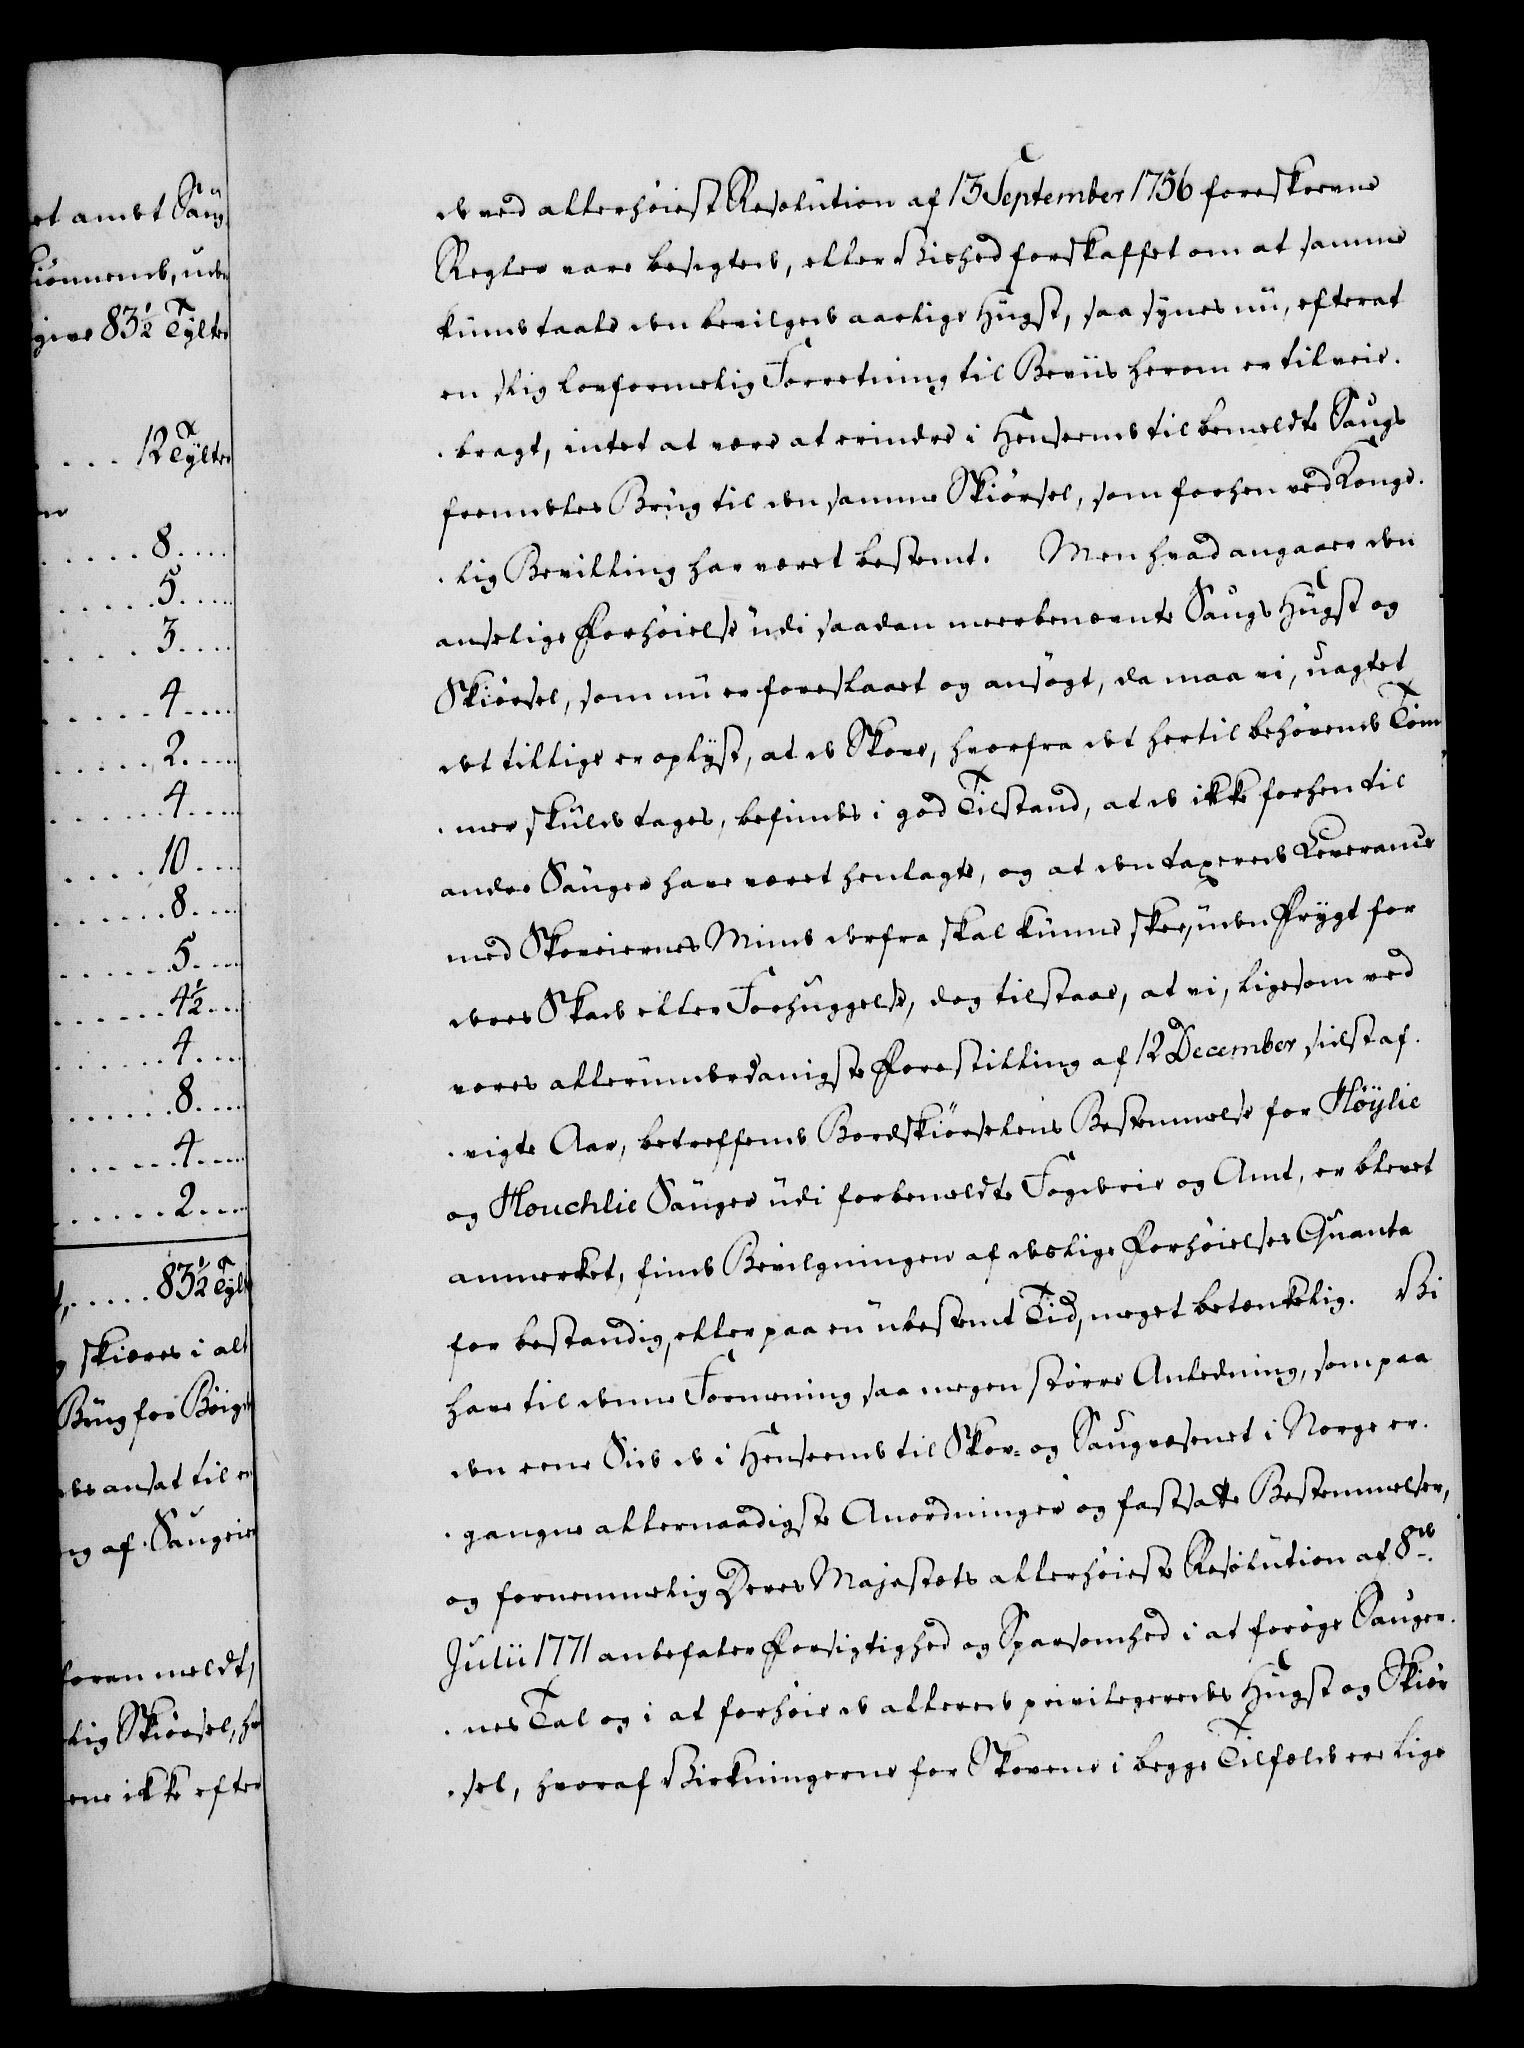 et andet Saug
kiønnende, uden
give 83½ Tylter
12 Tylter
8
5
3
4
2
4
10
8
5
4½
4
8
4
2
83½ Tylt
skiæres i alt
Brug for Bøigd
ansat til
ng af Saugeie
foranmeldt,
lig Skiørsel, h
ene ikke efter
de ved allerhøiest Resolution af 13 September 1756 foreskrevne
Regler vare besigtede, eller Vished forskaffet om at samme
kunde taale den bevilgede aarlige Hugst, saa synes nu, efterat
en slig lovformelig Forretning til Beviis herom er tilveie-
bragt, intet at være at erindre i Henseende til bemeldte Saugs
fremdeles Brug til den samme Skiørsel, som forhen ved Konge-
lig Bevilling har været bestemt. Men hvad angaaer den
anselige Forhøielse udi saadan meerbenevnte Saugs Hugst og
Skiørsel, som nu er foreslaaet og ansøgt, da maa vi, uagtet
det tillige er oplyst, at de Skove, hvorfra det hertil behøvende Tøm-
mer skulde tages, befindes i god Tilstand, at de ikke forhen til
andre Sauger have været henlagte, og at den taxerede Leverance
med Skoveiernes Minde derfra skal kunne skee, uden Frygt for
deres Skade eller Forhuggelse, dog tilstaae, at vi, ligesom ved
vores allerunderdanigste Forestilling af 12 December sidstaf-
vigte Aar, betreffende Bordskiørselens Bestemmelse for Höylie
og Houchlie Sauger udi forbemeldte Fogderie og Amt, er blevet
anmerket, finde Bevilgningen af deslige Forhøielses Quanta
for bestandig, eller paa en ubestemt Tid, meget betænkelig. Vi
have til denne Formening saa megen større Anledning, som paa
den eene Side de i Henseende til Skov- og Saugvæsenet i Norge er-
gangne allernaadigste Anordninger og fastsatte Bestemmelser,
og fornemmelig Deres Majestæts allerhøieste Resolution af 8de
Julii 1771 anbefaler Forsigtighed og Sparsomhed i at forøge Sauger-
nes Tal og i at forhøie de allerede privilegeredes Hugst og Skiør-
sel, hvoraf Virkningerne for Skovene i begge Tilfælde ere lige